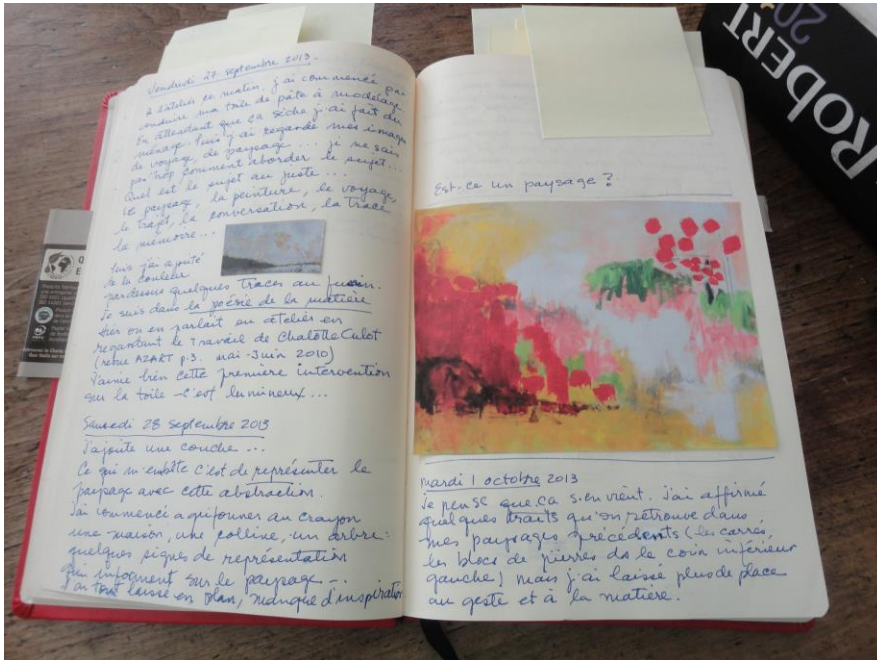 Vendredi 27 septembre 2013.
à l'atelier ce matin, j'ai commencé par
enduire ma toile de pâte à modelage
En attendant que ça sèche j'ai fait du
ménage. Puis j'ai regardé mes images
de voyage, de paysage... je ne sais
pas trop comment aborder le sujet...
Quel est le sujet au juste...
le paysage, la peinture, le voyage,
le trajet, la conversation, la trace
la mémoire...
Puis j'ai ajouté
de la couleur
par dessus quelques traces au fusain.
Je suis dans la poésie de la matière
Hier on en parlait en atelier en
regardant le travail de Chalotte Culot
(revue AZART p.3. mai-Juin 2010)
J'aime bien cette première intervention
sur la toile - C'est lumineux...
Samedi 28 septembre 2013
J'ajoute une couche...
Ce qui m'embête c'est de représenter le
paysage avec cette abstraction.
J'ai commencé à griffonner au crayon
une maison, une colline, un arbre:
quelques signes de représentation
qui informent sur le paysage...
J'ai tout laissé en plan, manque d'inspiration
Est-ce un paysage?
mardi 1 octobre 2013
Je pense que ça s'en vient. J'ai affirmé
quelques traits qu'on retrouve dans
mes paysages précédents (les carrés,
les blocs de pierres ds le coin inférieur
gauche) mais j'ai laissé plus de place
au geste et à la matière.
ROBERT
20